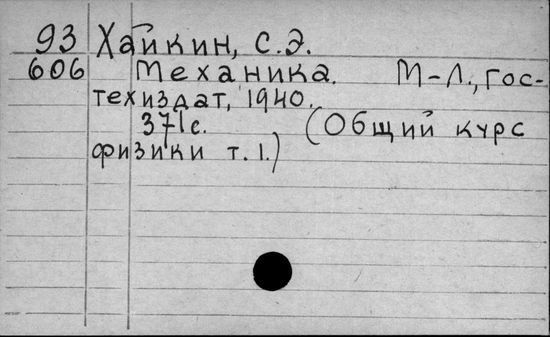 93 Хайкин, С.Э.
606 Механика. М-Л., Гос-
техиздат, 1940.
371с. (Общий курс
физики т. 1.)